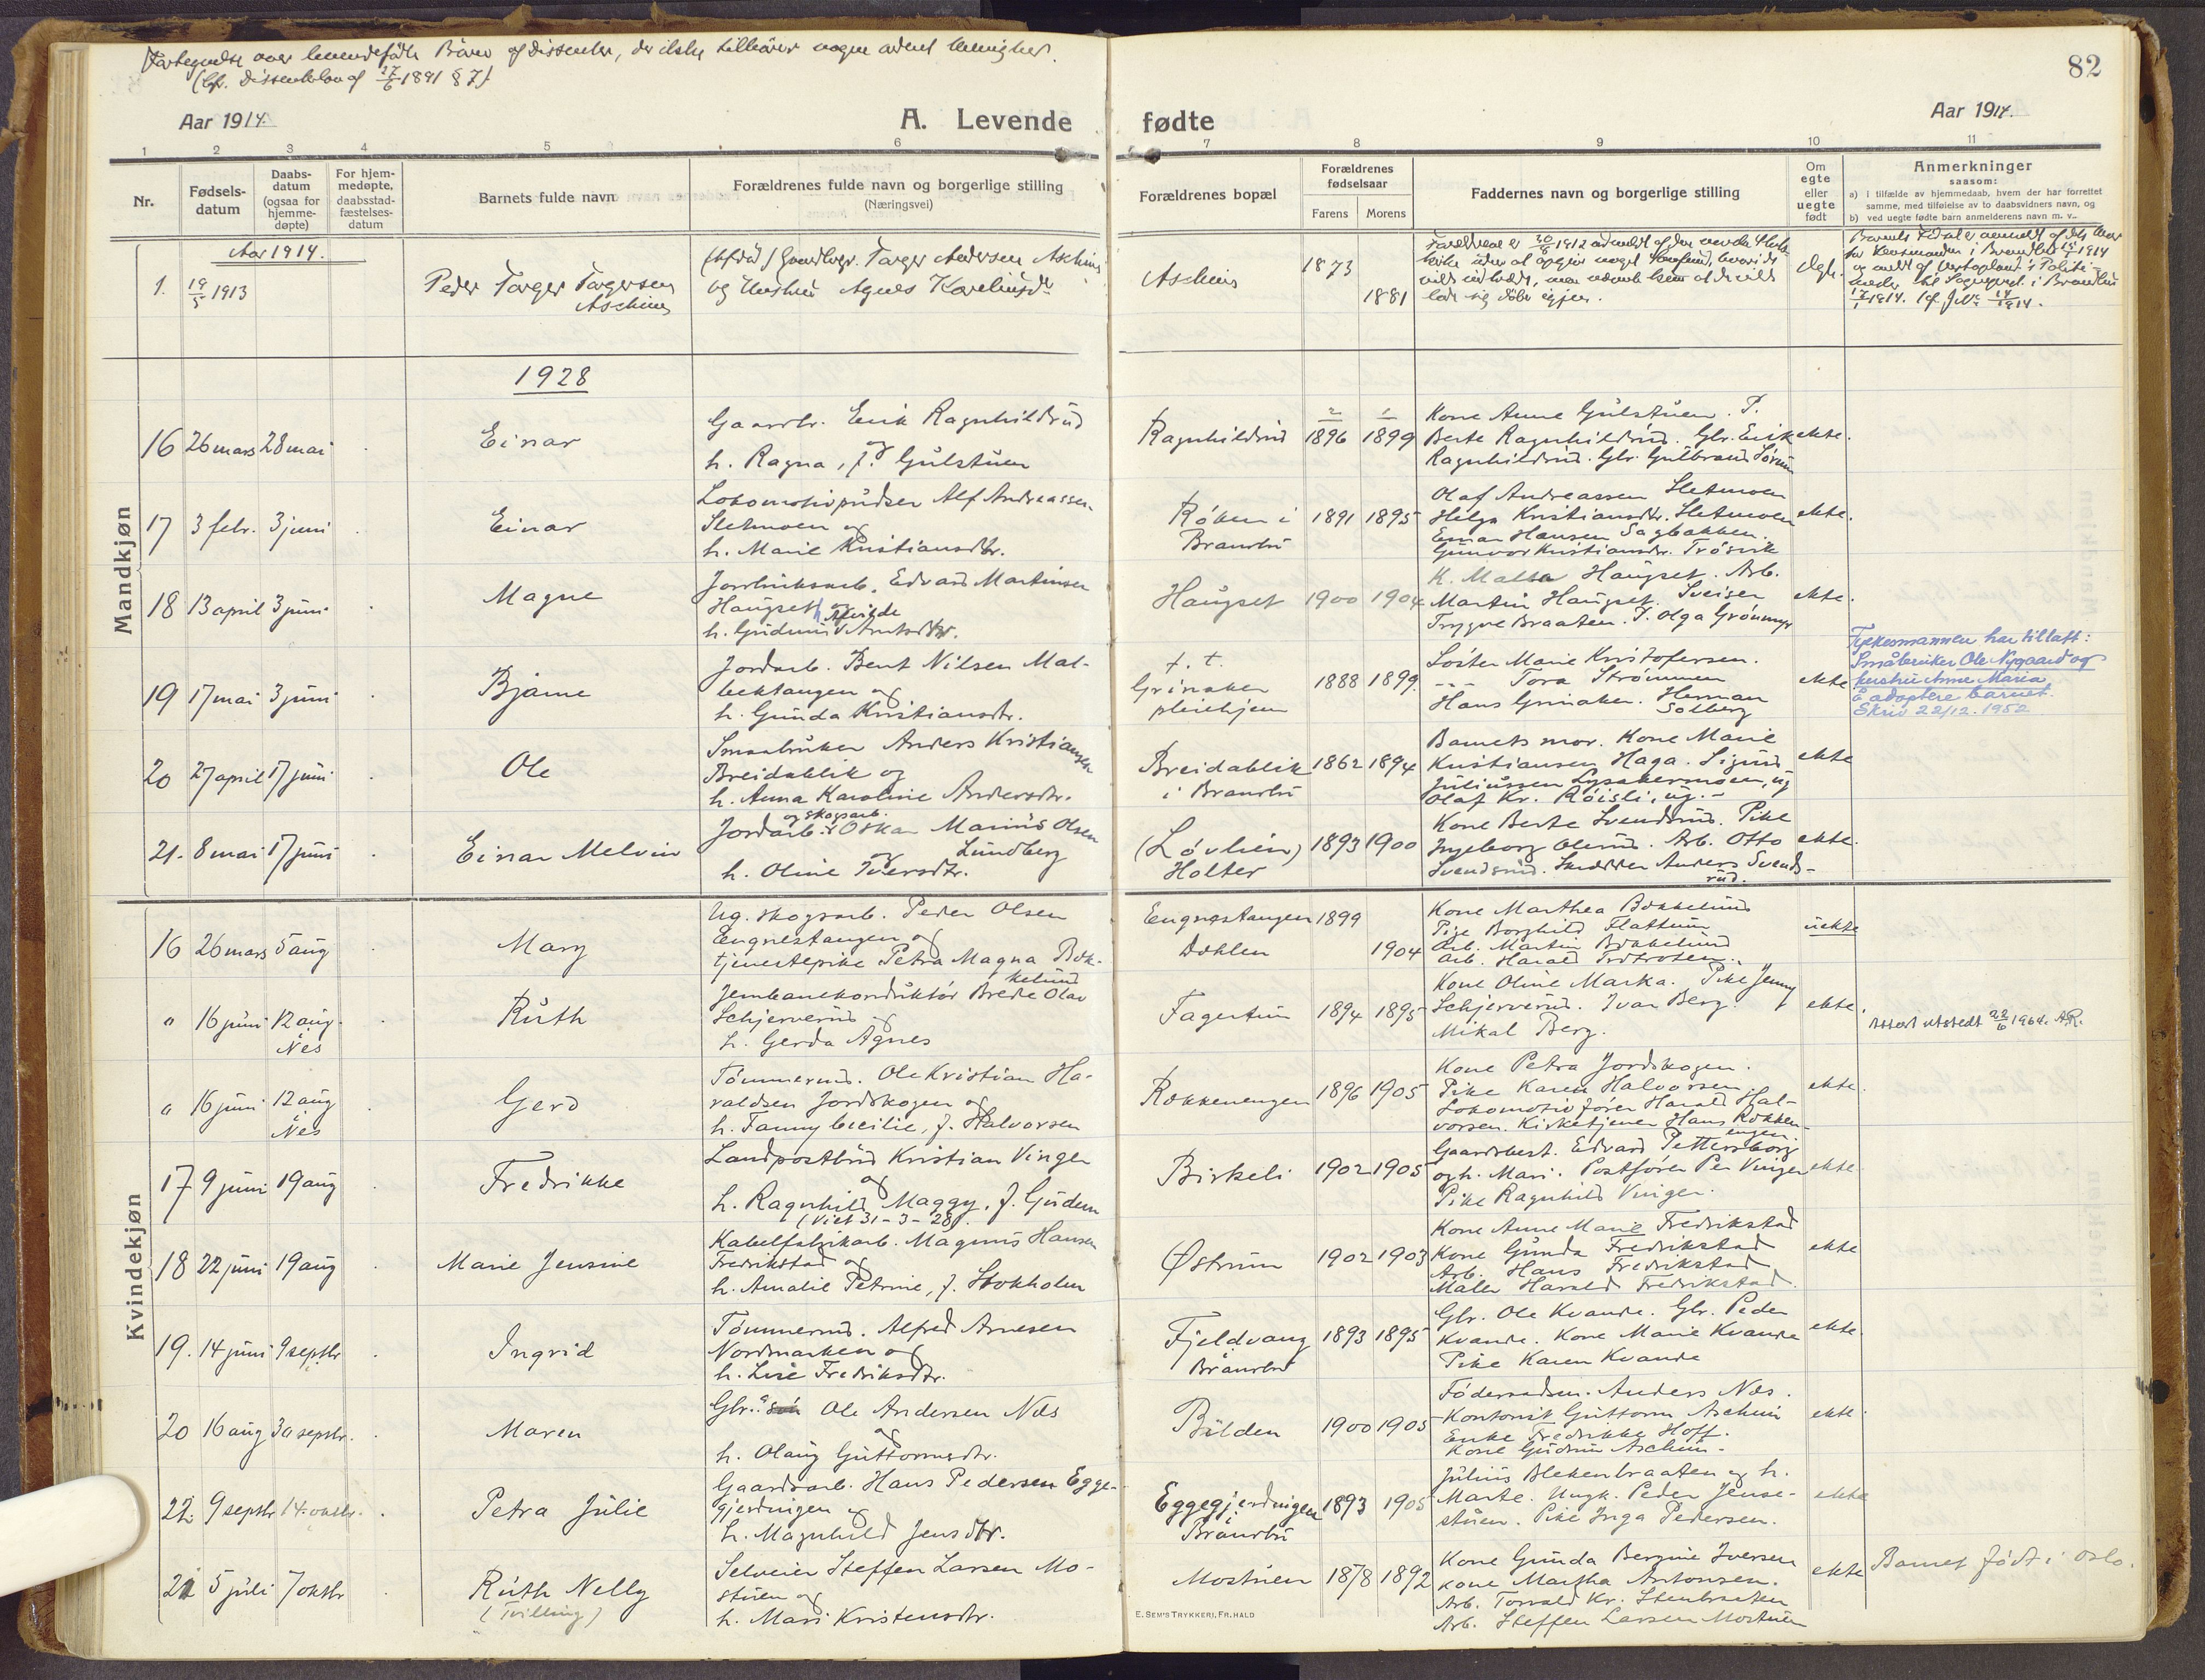 Fortegnelse over levendefødte Børn af dissenter, der ikke tilhører nogen ordnet menighed.
(Cfr. Dissenterlov af 27/6 1891 § 7).
82
Aar 1914.
A. Levende fødte
Aar 1914.
1 2 3 4 5 6 7 8 9 10 11
Nr.
Fødsels-
datum
Daabs-
datum
(ogsaa for
hjemme-
døpte)
For hjem-
medøpte,
daabsstad-
fæstelses-
datum
Barnets fulde navn
Forældrenes fulde navn og borgerlige stilling
(Næringsvei)
Forældrenes bopæl
Forældrenes
fødselsaar
Farens Morens
Faddernes navn og borgerlige stilling
Om
egte
eller
uegte
født
Anmerkninger
saasom:
a) i tilfælde av hjemmedaab, hvem der har forrettet
samme, med tilføielse av to daabsvidners navn, og
b) ved uegte fødte barn anmelderens navn m. v.
Aar 1914.
1. 19/5 1913
Peder Torger Torgersen
Aschim
Torger Andersen Aschim
og Hustru Agnes
Aschim
1873
1881
lade sig døbe igjen.
Ægte.
1928
Mandkjøn
16 26 mars 28 mai
Einar
Gaardbr. Erik Ragnhildrud
og
h. Ragna, f. Gulstuen
Ragnhildrud
2 1
1896 1899
Kone Anne Gulstuen. P.
Berte Ragnhildrud. Gbr. Erik
Ragnhildrud. Gbr. Gulbrand Sørum
ekte.
17 3 febr. 3 juni
Einar
Lokomotivpudser Alf Andreassen
Sletmoen og
h. Marie Kristiansdtr.
Røken i
Brandbu
1891 1895
Olaf Andreassen Sletmoen
Helga Kristiansdtr. Sletmoen
Einar Hansen Sagbakken.
Gunvor Kristiansdtr. Trøsvik
ekte.
18 13 april 3 juni
Magne
Jordbruksarb. Edvard Martinsen
Haugset og
h. Gudrun Alvilde Arntsdtr.
Haugset
1900 1904
K. Malla Haugset. Arb.
Martin Haugset. Sveiser
Trygve Braaten. P. Olga Grønmyr
ekte.
19 17 mai 3 juni
Bjarne
Jordarb. Bent Nilsen Mal-
becktangen og
h. Gunda Kristiansdtr.
f. t.
Grinaker
pleiehjem
1888 1899
Søster Marie Kristofersen.
--- Tora Strømmen
Hans Grinaker. Herman
Solberg
ekte
Fylkesmannen har tillatt:
Småbruker Ole Nygaard og
hustru Anne Maria
å adoptere barnet.
Skriv 22/12. 1952
20 27 april 17 juni
Ole
Smaabruker Anders Kristiansen
Breidablik og
h. Anna Karoline Andersdtr.
Breidablik
i Brandbu
1862 1894
Barnets mor. Kone Marie
Kristiansen Haga. Sigurd
Juliussen Lysakermoen, ug
Olaf Kr. Røisli, ug.
ekte
21. 8 mai 17 juni
Einar Melvin
og skogsarb.
Jordarb. Oskar Marius Olsen
og Lundberg
h. Oline Iversdtr.
(Løvlien)
Holter
1893 1900
Kone Berte Svendsrud. Pike
Ingeborg Olerud. Arb. Otto
Svendsrud. Skrædder Anders Svends-
rud.
ekte.
Kvindekjøn
16 26 mars 5 aug
Mary
Ug. skogsarb. Peder Olsen
Engnestangen og
tjenestepike Petra Magna Bæk-
kelund
Engnestangen
Dæhlen
1899
1904
Kone Marthea Bækkelund
Pige Borghild Flattum
Arb. Martin Bækkelund
Arb. Harald
uekte
" 16 juni 12 aug.
i
Nes
Ruth
Jernbanekonduktør Brede Olav
Schjerverud og
h. Gerda Agnes
Fagertun
1894 1895
Kone Oline Marka. Pike Jenny
Schjerverud. Ivar Berg.
Mikal Berg.
ekte.
Attest utstedt 22/6 1964. A.R.
" 16 juni 12 aug
i
Nes
Gerd
Tømmermd. Ole Kristian Ha-
raldsen Jordskogen og
h. Fanny Cecilie, f. Halvorsen
Rækkenengen
1896 1905
Kone Petra Jordskogen.
Pike Karen Halvorsen.
Lokomotivfører Harald Hal-
vorsen. Kirketjener Hans Rækken-
engen.
ekte.
17 9 juni 19 aug
Fredrikke
Landpostbud Kristian Vinger
og
h. Ragnhild Maggy, f. Gudem
(Viet 31-3-28).
Birkeli
1902 1905
Gaardsbest. Edvard Pettersborg
og h. Mari. Postfører Per Vinger
Pike Ragnhild Vinger.
ekte
18 22 juni 19 aug
Marie Jensine
Kabelfabrikarb. Magnus Hansen
Fredrikstad og
h. Amalie Petrine, f. Stokholm
Østrum
1902 1903
Kone Anne Marie Fredrikstad
Kone Gunda Fredrikstad
Arb. Hans Fredrikstad
Maler Harald Fredrikstad.
ekte
19. 14 juni 9 septbr
Ingrid
Tømmermd. Alfred Arnesen
Nordmarken og
h. Lise Fredriksdtr.
Fjeldvang
i
Brandbu
1893 1895
Gbr. Ole Kvande. Gbr. Peder
Kvande. Kone Marie Kvande
Pike Karen Kvande
ekte.
20 16 aug 30 septbr.
Maren
Gbr. søn Ole Andersen Næs
og
h. Olaug Guttormsdtr.
Bilden
1900 1905
Føderaadsm. Anders Næs.
Kontorist Guttorm Aschim
Enke Fredrikke Hoff.
Kone Gudrun Aschim.
ekte.
22. 9 septbr 14. oktbr.
Petra Julie
Gaardsarb. Hans Pedersen Egge-
gjerdingen og
h. Magnhild Jensdtr.
Eggegjerdingen
i
Brandbu
1893 1905
Julius Blekenbraaten og h.
Marte. Ungk. Peder Jense-
stuen. Pike Inga Pedersen.
ekte
21 5 juli 7 oktbr
Ruth Nelly
(Tvilling)
Selveier Steffen Larsen Mo-
stuen og
h. Mari Kristensdtr.
Mostuen
1878 1892
Kone Gunda Bergine Iversen
Kone Martha Antonsen.
Arb. Torvald Kr. Stenbraaten
Arb. Steffen Larsen Mostuen
ekte
Barnet født i Oslo.
E. SEM'S TRYKKERI, FR.HALD